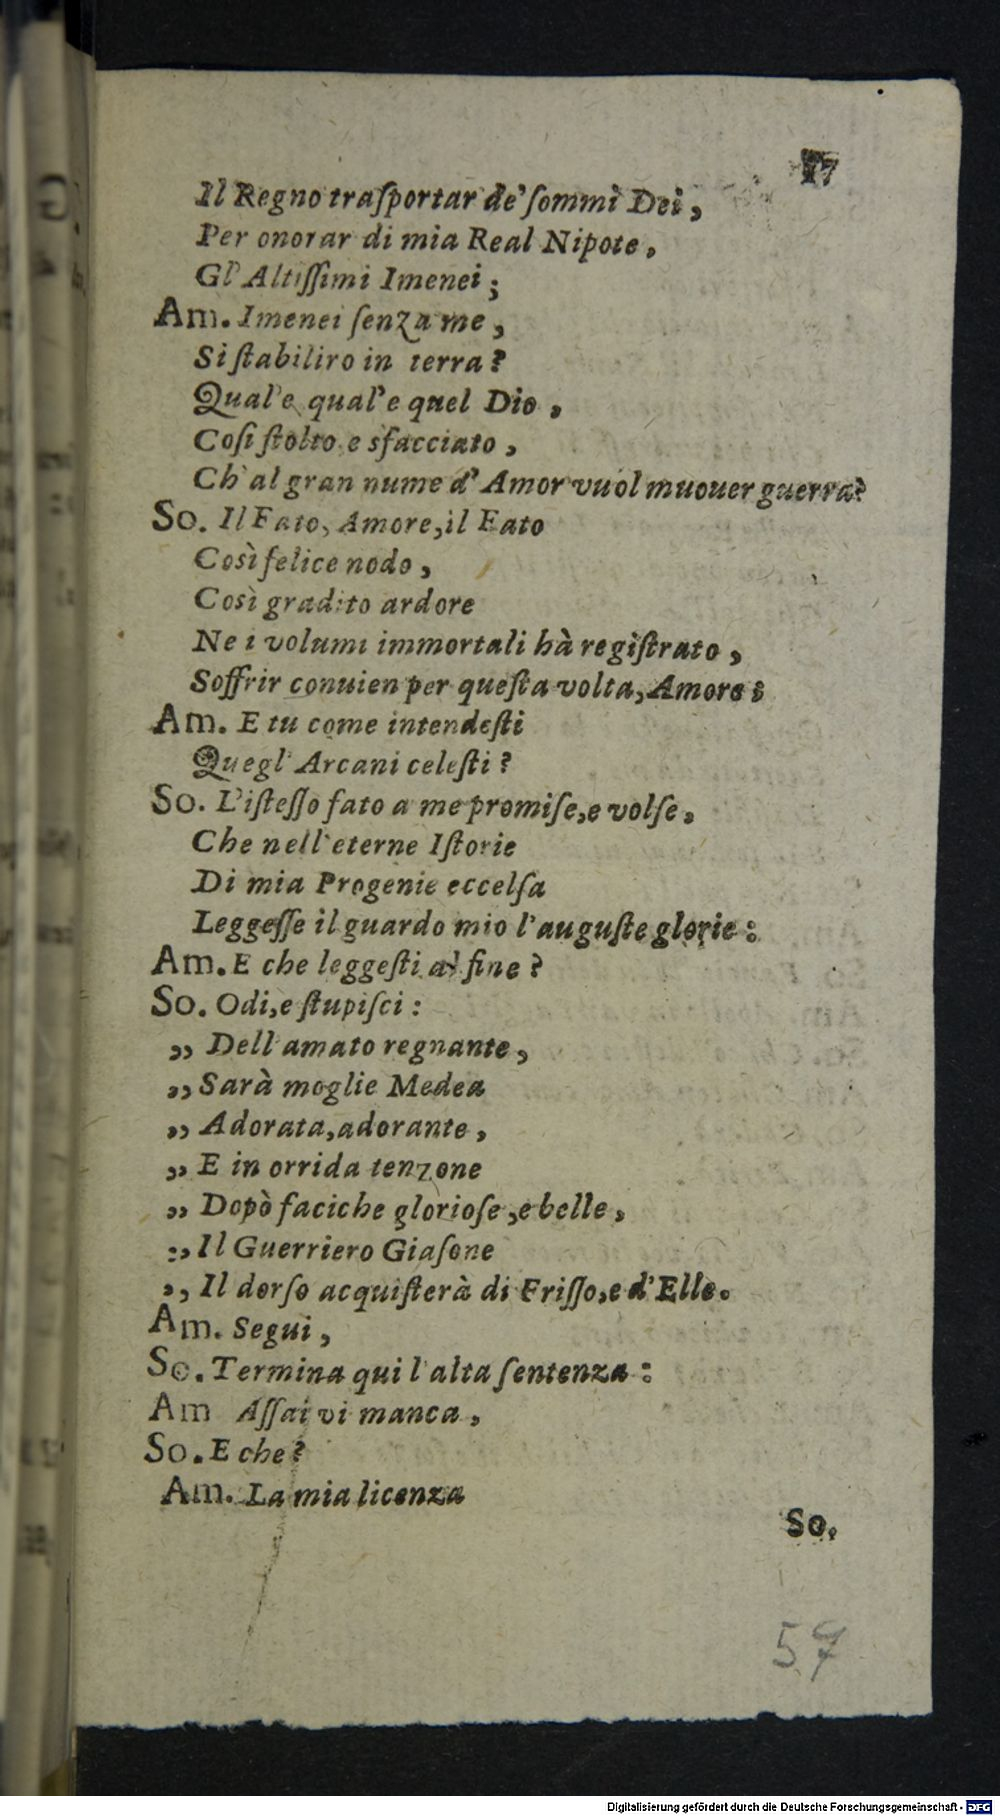 17
Il Regno traſportar de' ſommi Dei,
Per onorar di mia Real Nipote,
Gl' Altiſſimi Imenei;
Am. Imenei ſenza me,
Si ſtabiliro in terra?
Qual'e qual'e quel Dio,
Coſi ſtolto e sfacciato,
Ch' al gran nume d' Amor vuol muouer guerra?
So. Il Fato, Amore, il Fato
Così felice nodo,
Così gradito ardore
Ne i volumi immortali hà regiſtrato,
Soffrir conuien per queſta volta, Amore:
Am. E tu come intendeſti
Quegl' Arcani celeſti?
So. L'iſteſſo fato a me promiſe, e volſe,
Che nell'eterne Iſtorie
Di mia Progenie eccelſa
Leggeſſe il guardo mio l'auguſte glorie:
Am. E che leggeſti al fine?
So. Odi, e ſtupiſci:
„ Dell'amato regnante,
„ Sarà moglie Medea
„ Adorata, adorante,
„ E in orrida tenzone
„ Dopò faciche glorioſe, e belle,
„ Il Guerriero Giaſone
„ Il dorſo acquiſterà di Friſſo, e d'Elle.
Am. Segui,
So. Termina qui l'alta ſentenza:
Am Aſſai vi manca,
So. E che?
Am. La mia licenza
So.
57
Digitalisierung gefördert durch die Deutsche Forschungsgemeinschaft - DFG